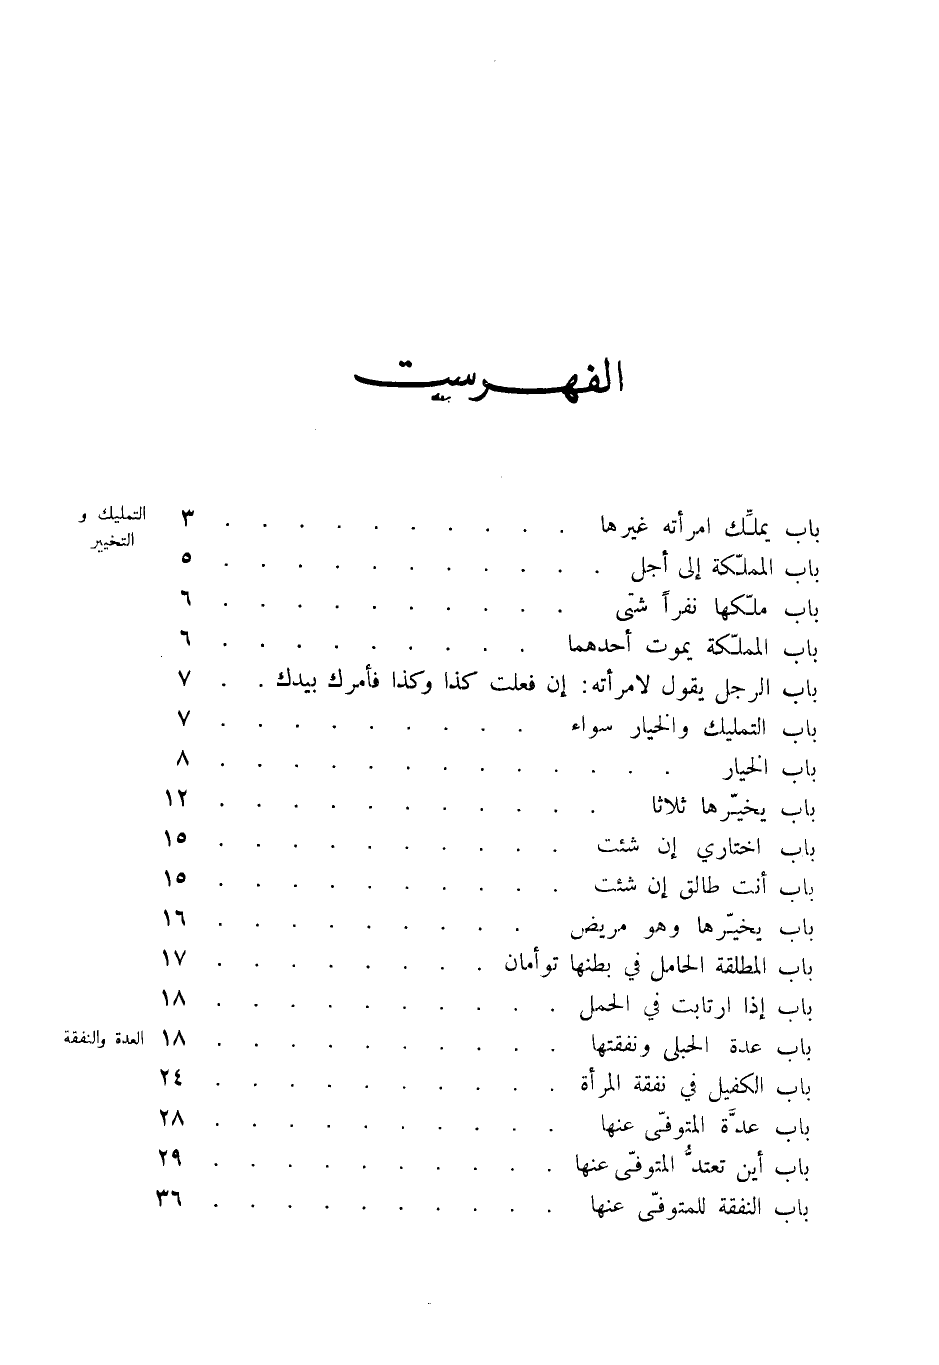 الفهرست
باب يملّك امرأته غيرها . . . . . . . . . . ٣ التمليك و
التخيير
باب المملّكة إلى أجل . . . . . . . . . . . ٥
باب ملّكها نفراً شتى . . . . . . . . . . ٦
باب المملّكة يموت أحدهما . . . . . . . . . ٦
باب الرجل يقول لامرأته: إن فعلت كذا وكذا فأمرك بيدك . . ٧
باب التمليك والخيار سواء . . . . . . . . . ٧
باب الخيار . . . . . . . . . . . . . ٨
باب يخيّرها ثلاثا . . . . . . . . . . . ١٢
باب اختاري إن شئت . . . . . . . . . . ١٥
باب أنت طالق إن شئت . . . . . . . . . . ١٥
باب يخيّرها وهو مريض . . . . . . . . . ١٦
باب المطلقة الحامل في بطنها توأمان . . . . . . . . ١٧
باب إذا ارتابت في الحمل . . . . . . . . . . ١٨
باب عدة الحبلى ونفقتها . . . . . . . . . . ١٨ العدة والنفقة
باب الكفيل في نفقة المرأة . . . . . . . . . . ٢٤
باب عدَّة المتوفّى عنها . . . . . . . . . . ٢٨
باب أين تعتدُّ المتوفّى عنها . . . . . . . . . . ٢٩
باب النفقة للمتوفّى عنها . . . . . . . . . . ٣٦